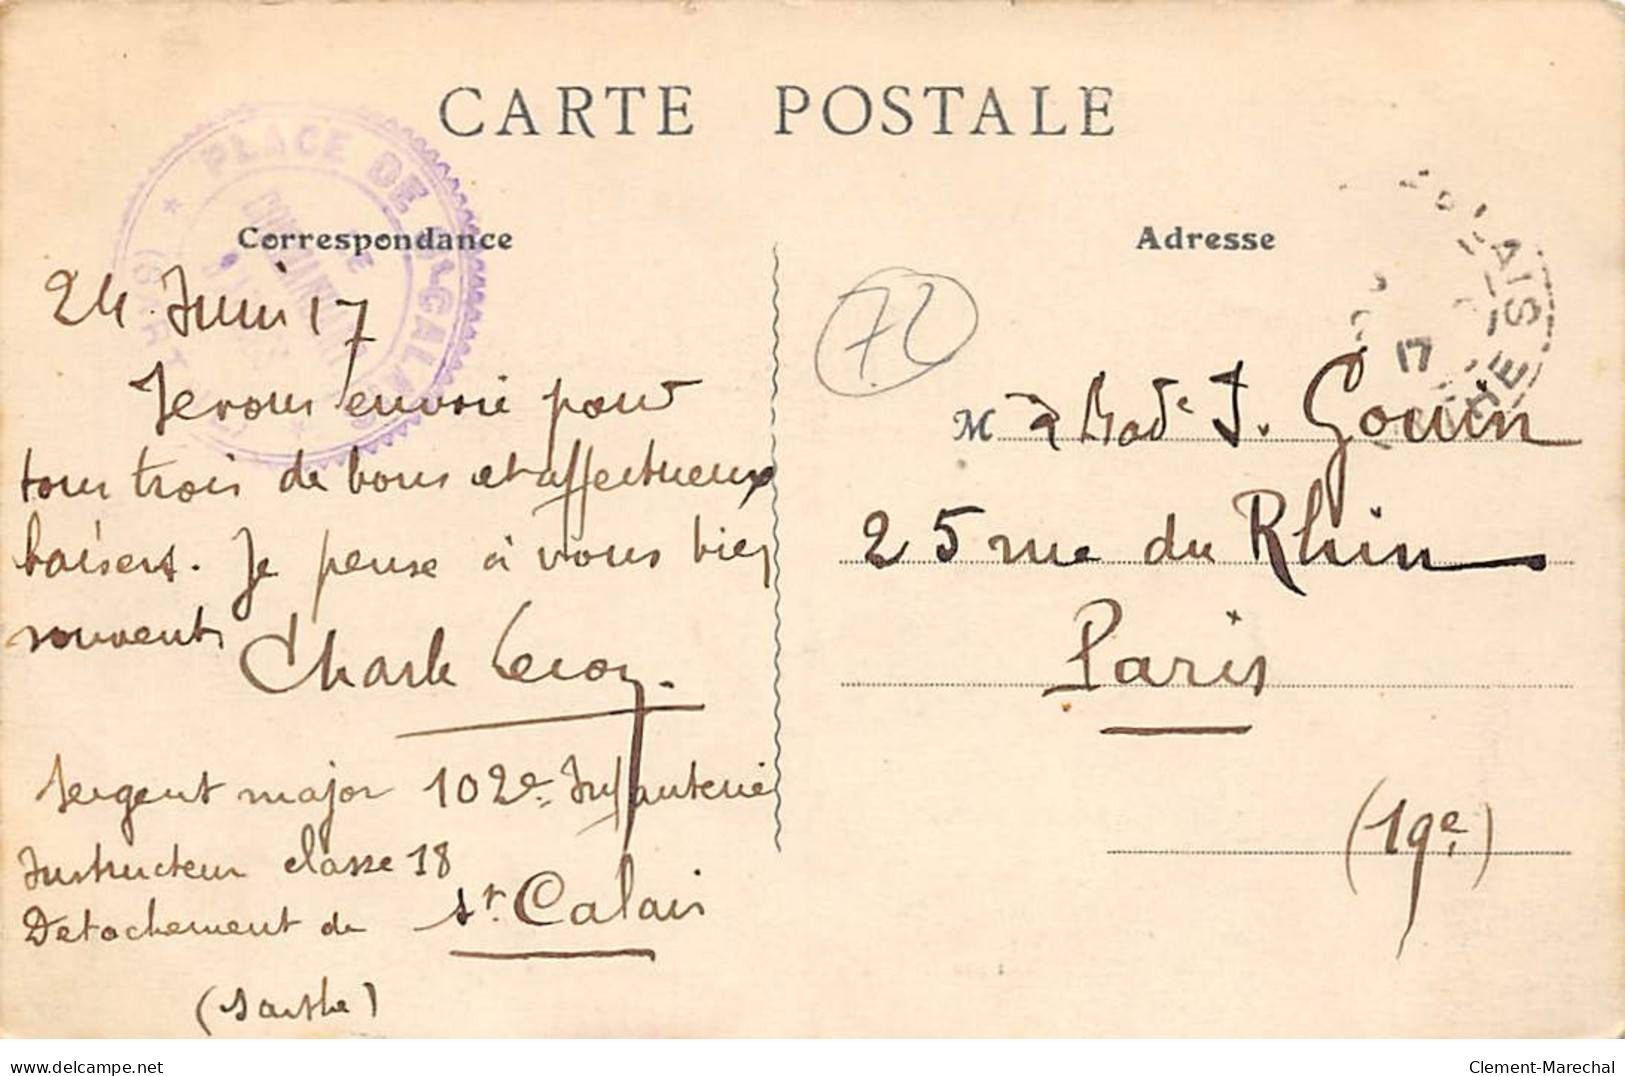 CARTE POSTALE
PLACE DE St CALAIS
Correspondance
Adresse
24 Juin 17
Je vous envoie pour
tous trois de bons et affectueux
baisers. Je pense à vous bien
souvent
Charle Leroy.
Sergent major 102e Infanterie
Instructeur classe 18
Detachement de St. Calais
(Sarthe)
72
17
M à Made J. Gouin
25 rue du Rhin
Paris
(19e)
delcampe.net
Clement-Marechal